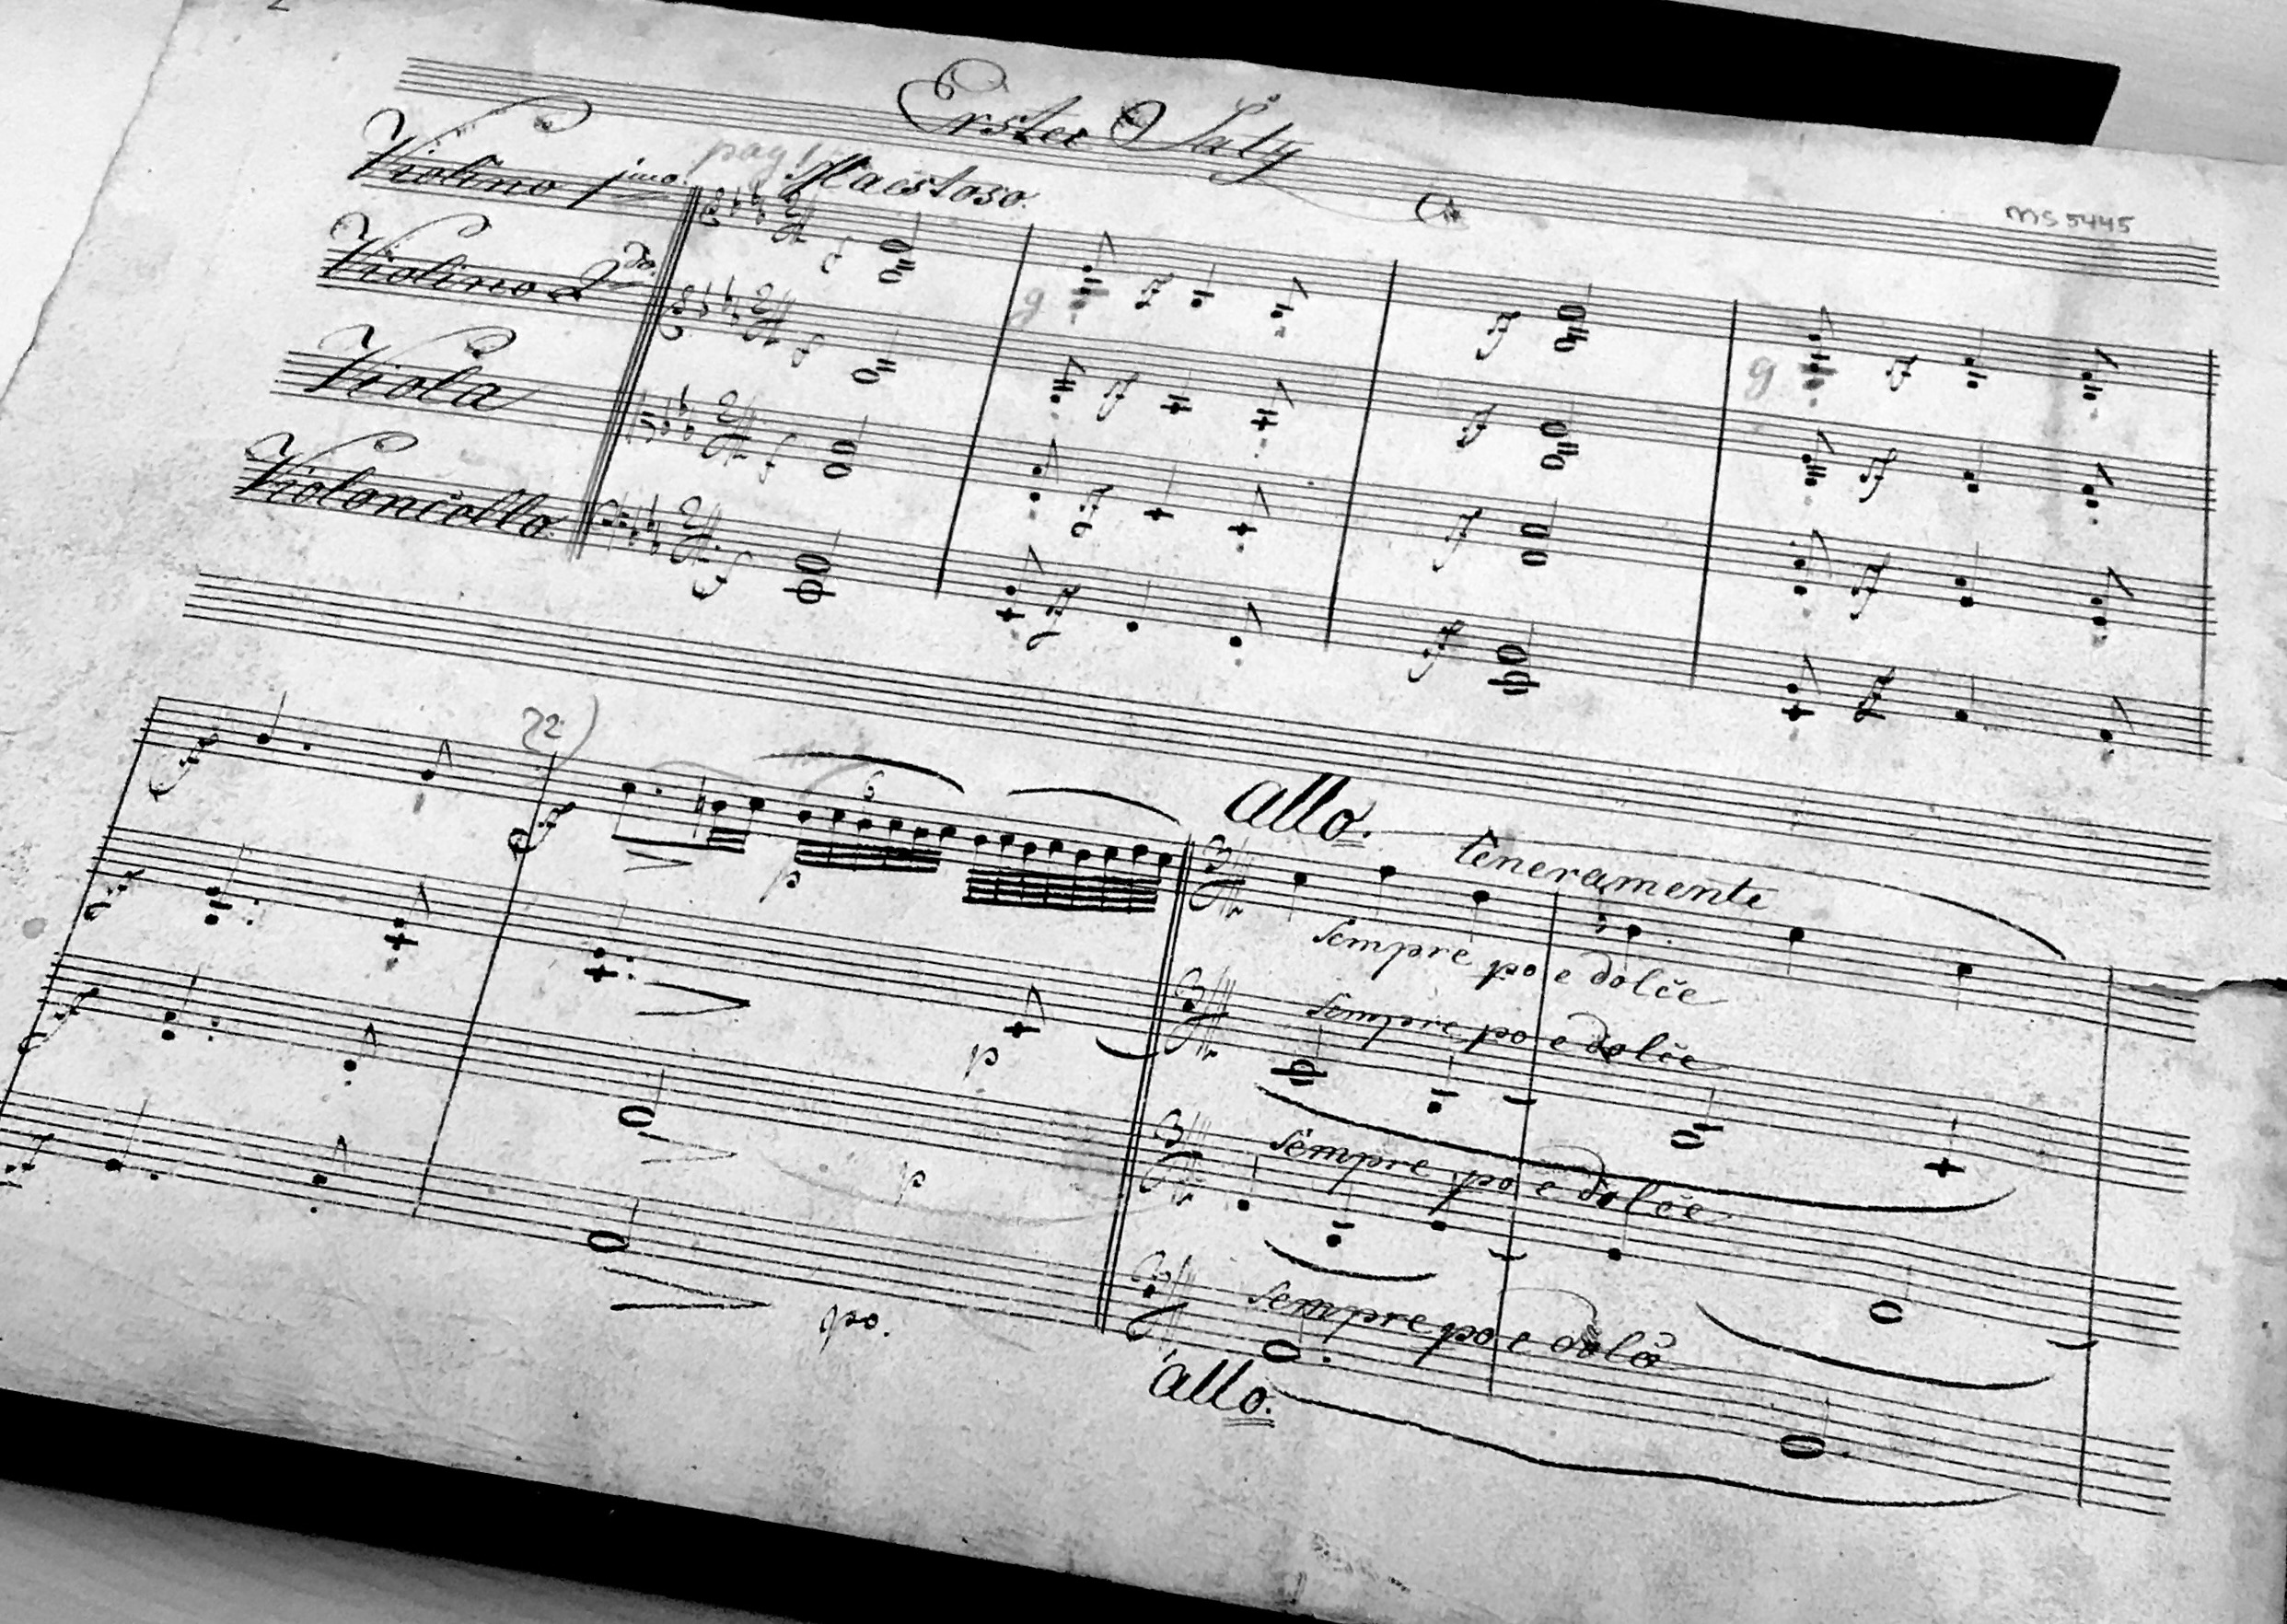 2
Erster Satz
Violino 1mo. pag 1 Maestoso.
MS 5445
Violino 2do.
Viola
Violoncello
f
f
f
f
g f f g f
f f f
f f f
f f f
22)
allo.
teneramente
f f 6 p
sempre po e dolce
f p
sempre po e dolce
f p
sempre po e dolce
f po.
sempre po e dolce
allo.